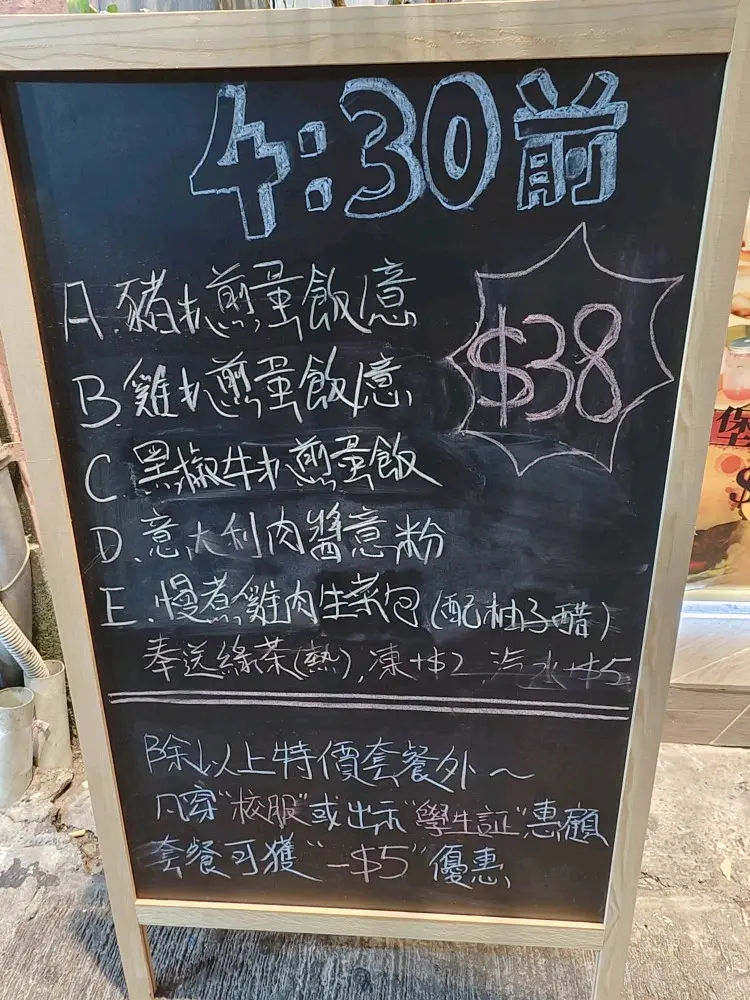 4:30前
A.豬扒煎蛋飯/意
$38
B.雞扒煎蛋飯/意
C.黑椒牛扒煎蛋飯
D.意大利肉醬意粉
E.慢煮雞肉生菜包(配柚子醋)
奉送綠茶(熱),凍+$2,汽水+$5
除以上特價套餐外~
凡穿"校服"或出示"學生証"惠顧
套餐可獲"-$5"優惠
堡
$